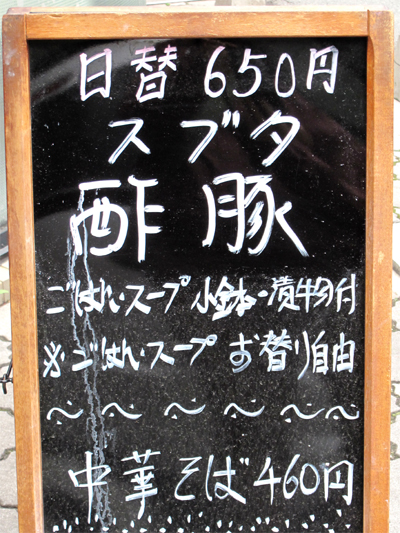 日替 650円
スブタ
酢豚
ごはん・スープ 小鉢・漬物付
※ごはん・スープ お替り自由
〜 〜 〜 〜 〜 〜 〜
中華そば 460円